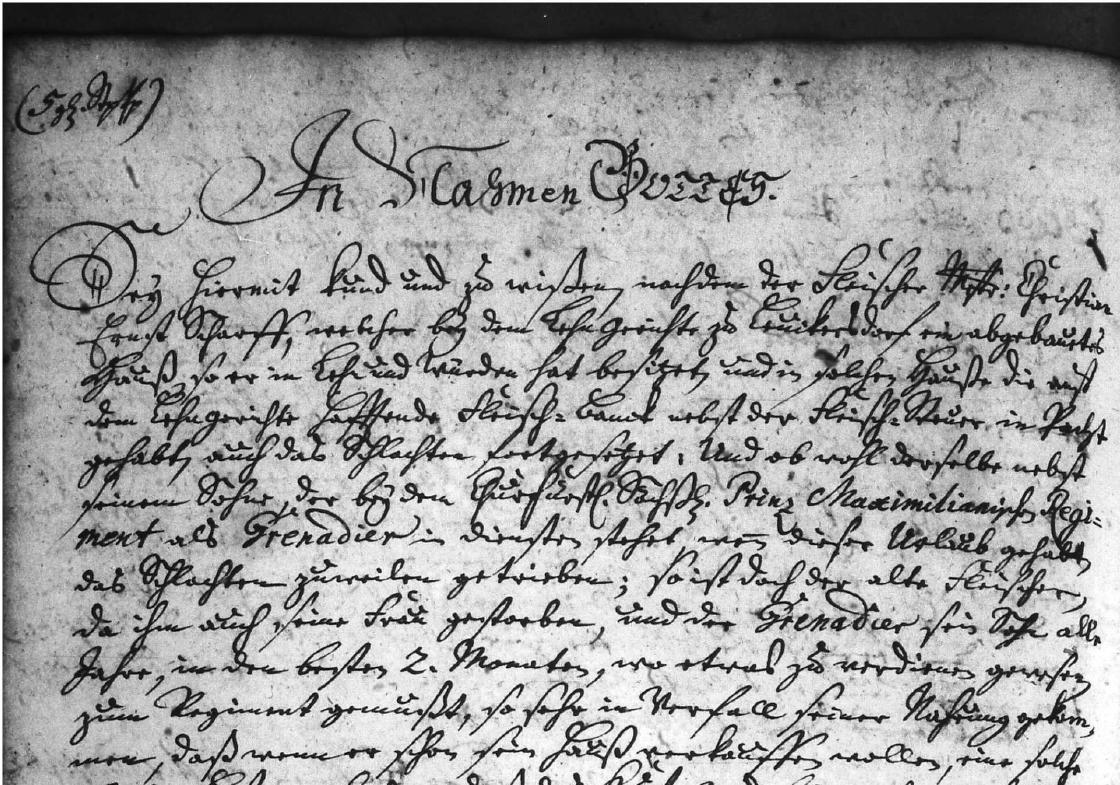 In Nahmen GOTTES.
Sey hiermit kund und zu wißen, nachdem der Fleischer Mstr: Christian
Ernst Scharff, welcher bey dem Lehngerichte zu Leuckersdorf ein abgebautes
Hauß, so er in Lehn und Würden hat besitzet, und in solchen Hauße die auf
dem Lehngerichte hafftende Fleisch-Banck nebst der Fleisch-Steuer in Pacht
gehabt, auch das Schlachten fortgesetzet; Und ob wohl derselbe nebst
seinem Sohne, der bey dem Churfürstl. Sächßl. Prinz Maximilianischen Regi-
ment als Grenadier in diensten stehet, wenn dieser Urlaub gehabt,
das Schlachten zuweilen getrieben; so ist doch der alte Fleischer,
da ihm auch seine Frau gestorben, und der Grenadier sein Sohn alle
Jahre, in den besten 2. Monaten, wo etwas zu verdienen gewesen,
zum Regiment gemußt, so sehr in Verfall seiner Nahrung gekom-
men, daß wenn er schon sein Hauß verkauffen wollen, eine solche